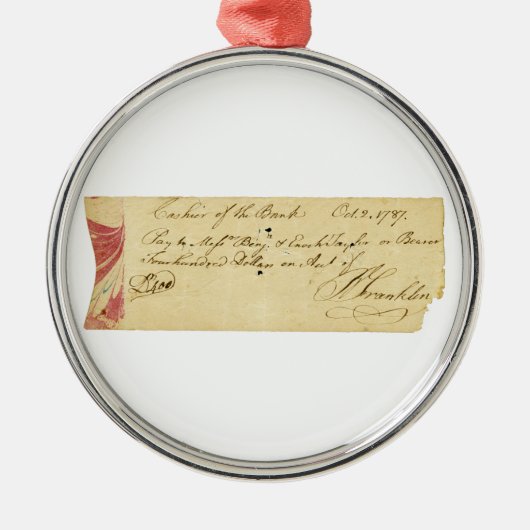 Cashier of the Bank Oct. 2. 1787.
Pay to Messrs Benj.n & Enoch Taylor or Bearer
Four hundred Dollars on Acct of
Ds 400 B Franklin